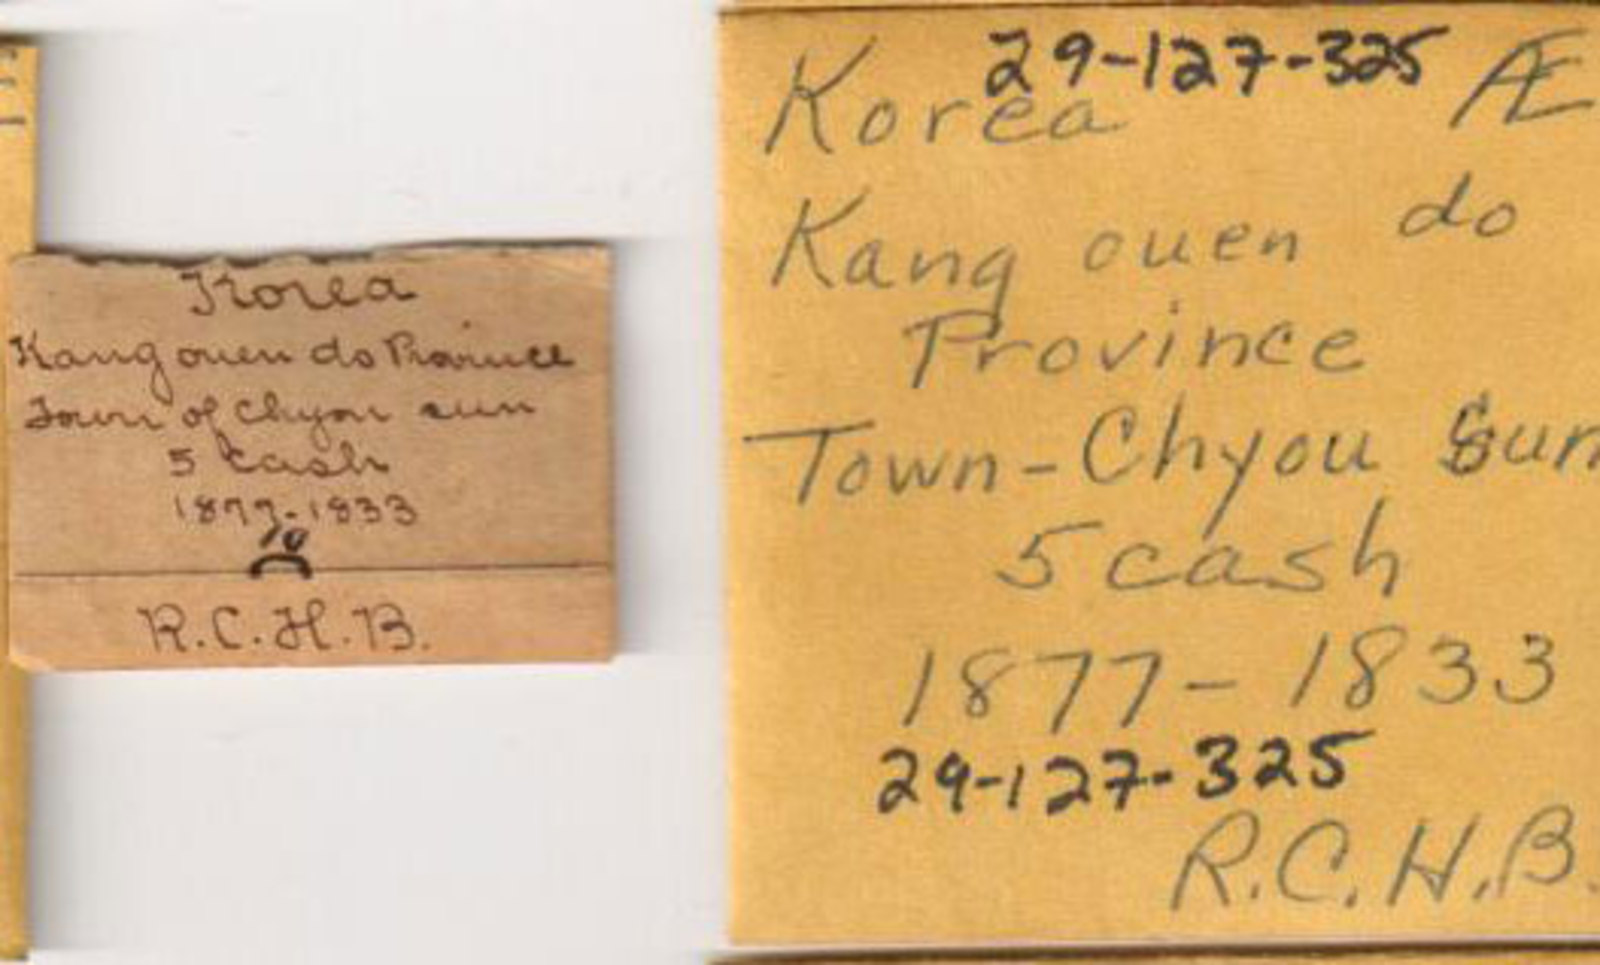 Korea
Kang ouen do Province
Town of Chyou sun
5 cash
1877-1833
10
R.C.H.B.
29-127-325
Korea Æ
Kang ouen do
Province
Town-Chyou Sun
5 cash
1877-1833
29-127-325
R.C.H.B.